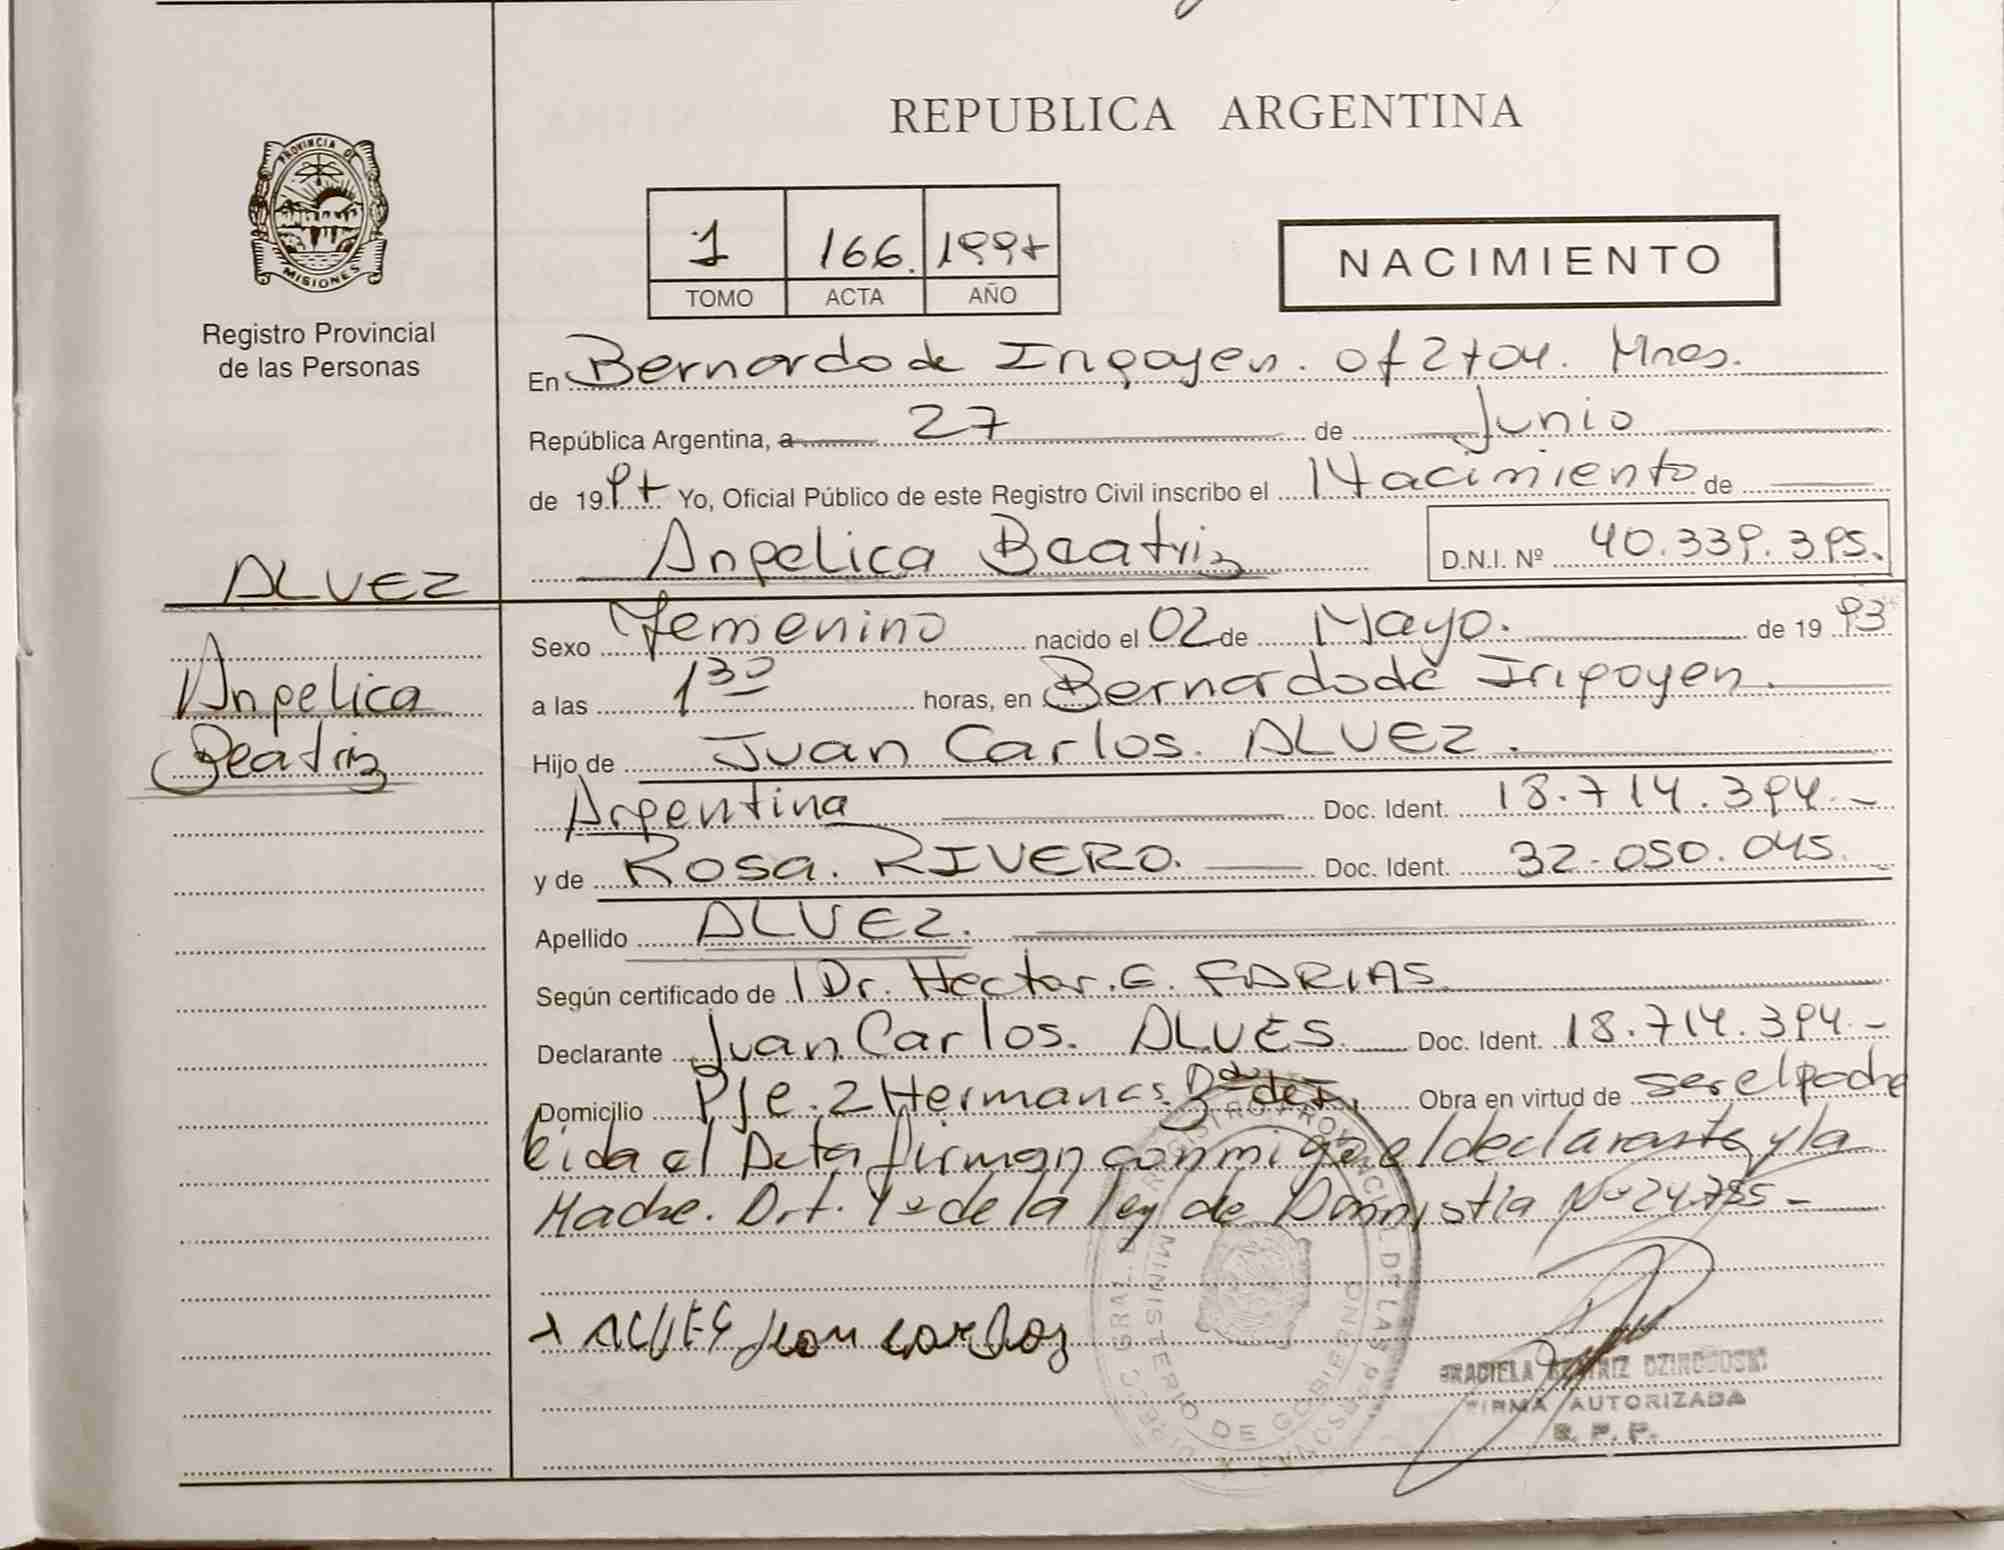 REPUBLICA ARGENTINA
PROVINCIA DE
MISIONES
Registro Provincial
de las Personas
1 166. 1997
TOMO ACTA AÑO
NACIMIENTO
En Bernardo de Irigoyen. of 2704. Mnes.
República Argentina, a 27 de Junio
de 1997 Yo, Oficial Público de este Registro Civil inscribo el Nacimiento de
Angelica Beatriz D.N.I. Nº 40.339.395.
ALVEZ
Angelica
Beatriz
Sexo Femenino nacido el 02 de Mayo. de 1993
a las 1 30 horas, en Bernardo de Irigoyen.
Hijo de Juan Carlos. ALVEZ.
Argentina Doc. Ident. 18.714.394.-
y de Rosa. RIVERO. Doc. Ident. 32.050.045.
Apellido ALVEZ.
Según certificado de Dr. Hector. E. FARIAS.
Declarante Juan Carlos. ALVES. Doc. Ident. 18.714.394.-
Domicilio Pje. 2 Hermanas. Bdo de I. Obra en virtud de ser el padre
leida el Acta firman conmigo el declarante y la
Madre. Art. 1º de la ley de Amnistia Nº 24.755-
ALVES Juan carlos
REGISTRO PROVINCIAL DE LAS PERSONAS
MINISTERIO DE GOBIERNO
GRACIELA BEATRIZ
FIRMA AUTORIZADA
R. P. P.